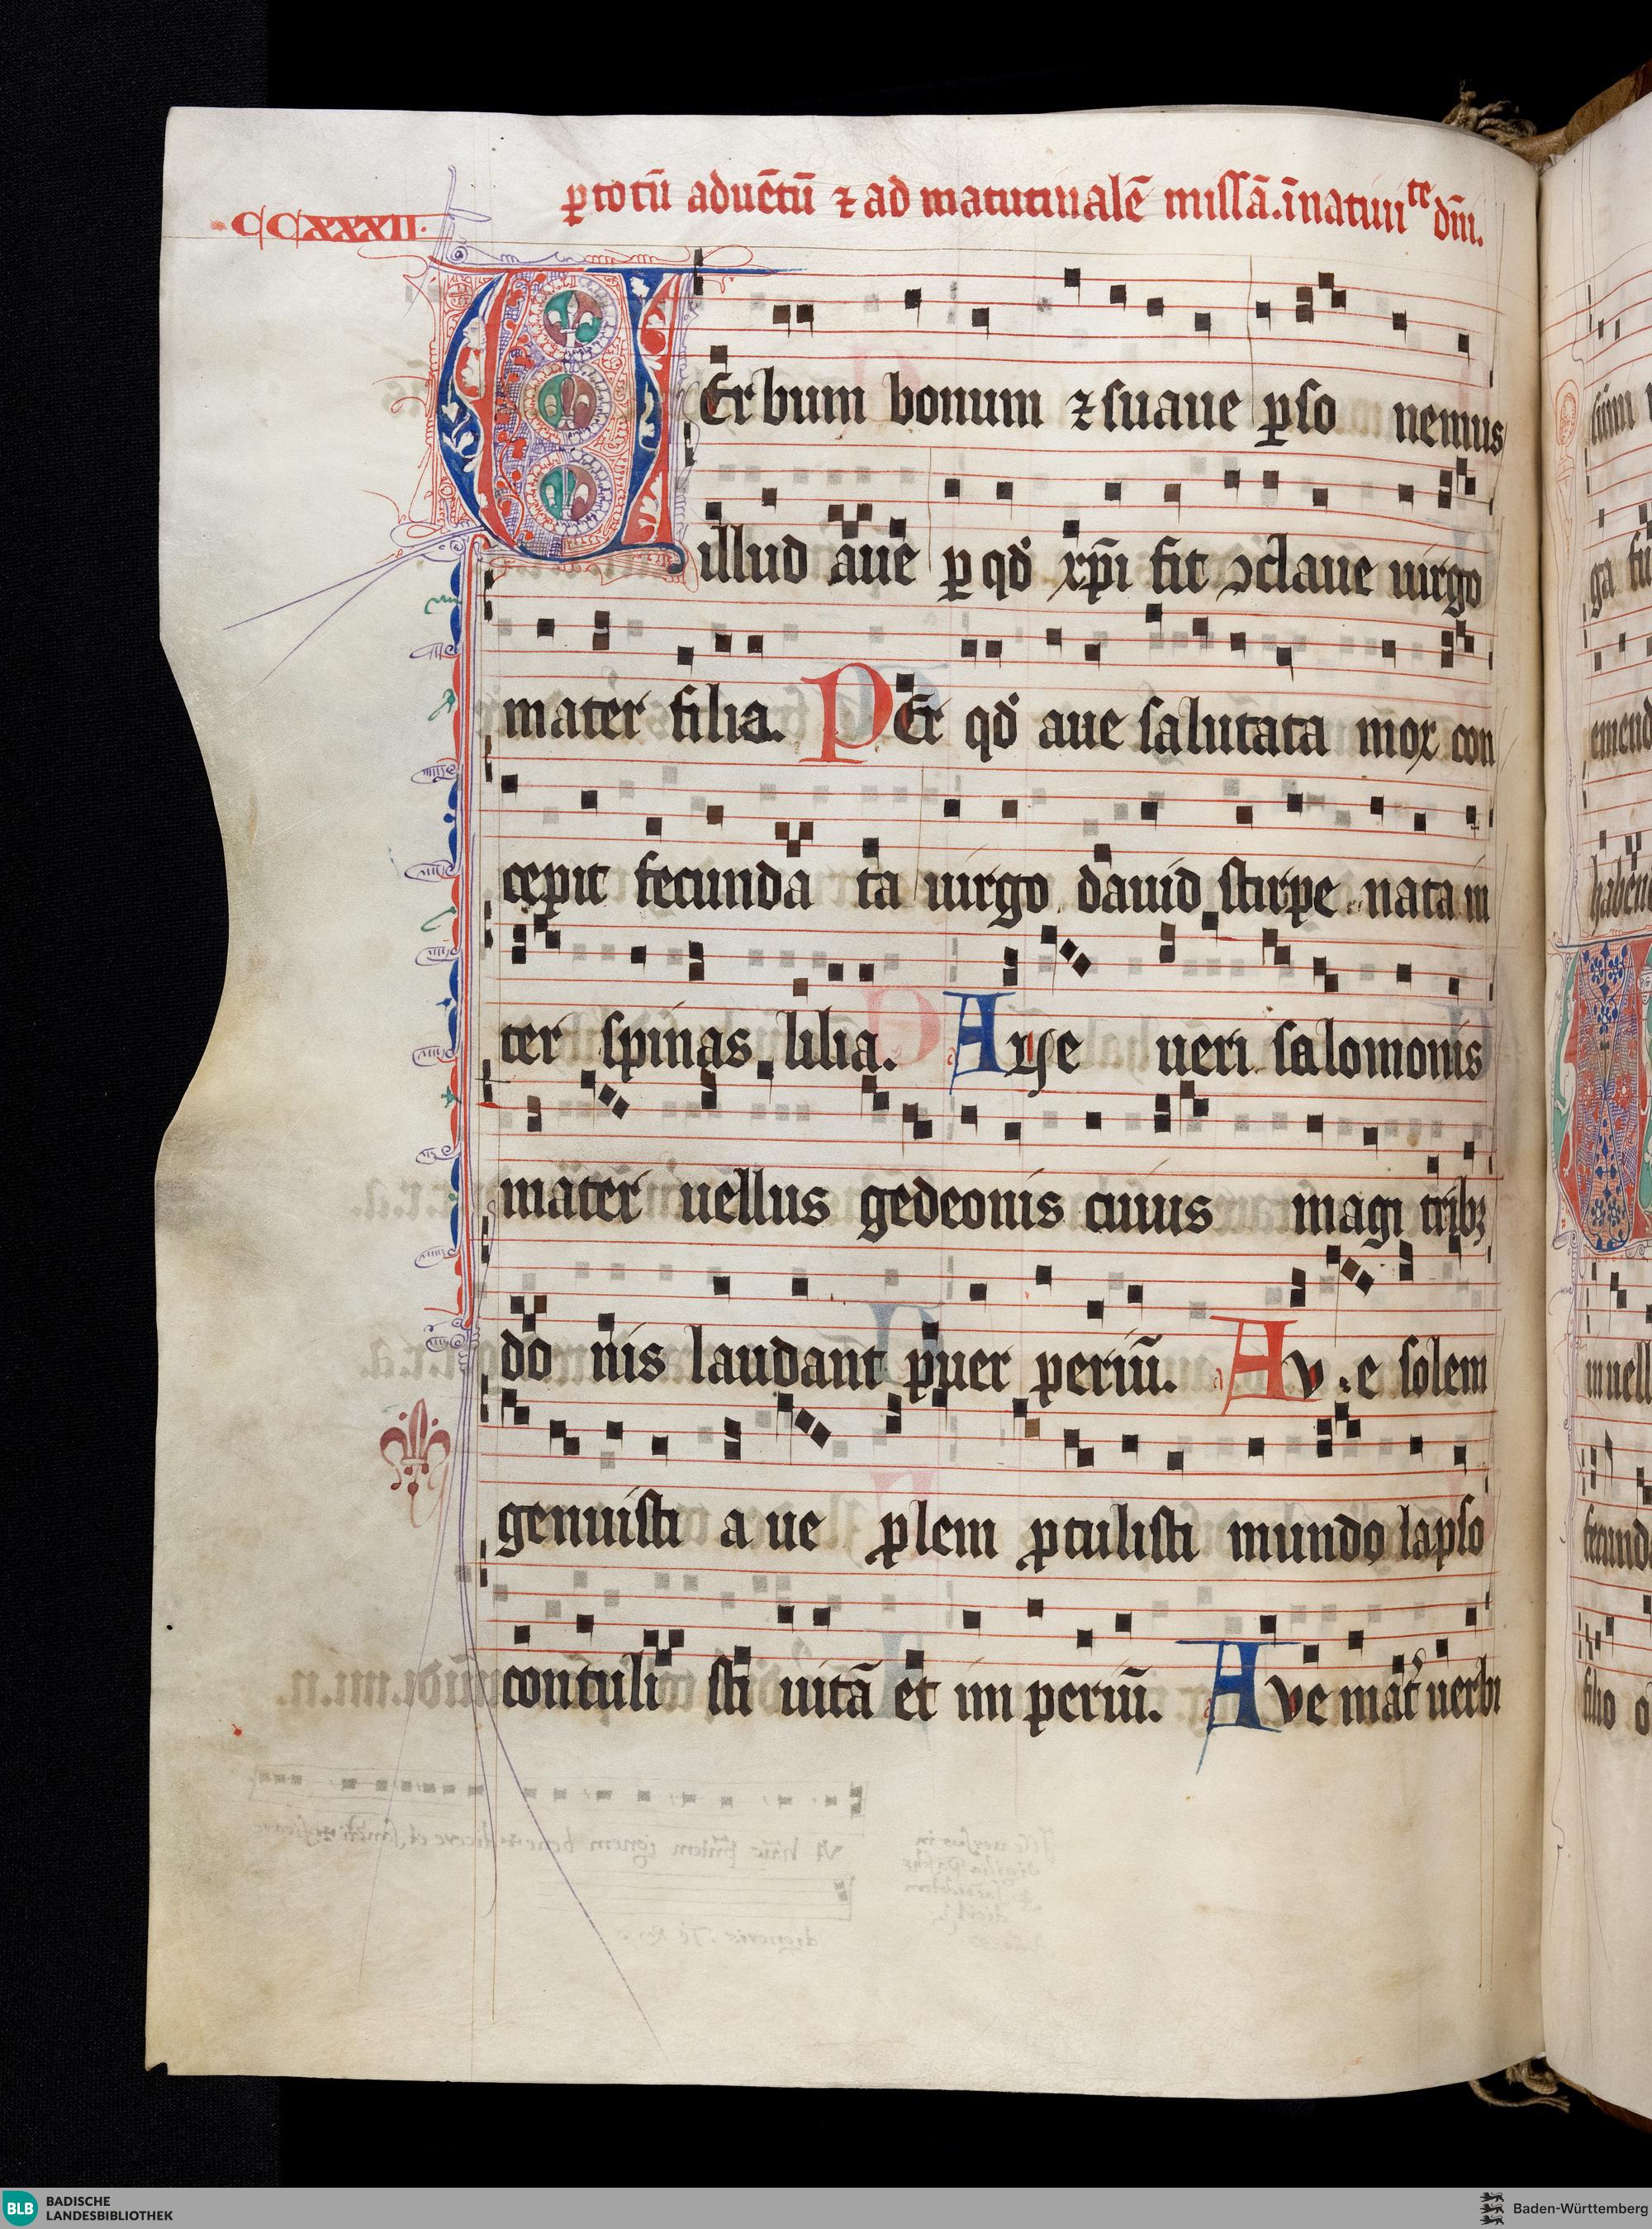 ꝑ totū aduētū ⁊ ad matutinalē missā. ī natiuiᵗᵉ dn̄i.
CCXXXII.
VErbum bonum ⁊ suaue ꝑso nemus
illud aue ꝑ qd̕ xp̄i fit ↄclaue uirgo
mater filia. PEr qd̕ aue salutata mox con
cepit fecunda ta uirgo dauid stirpe nata in
ter spinas lilia. Aue ueri salomonis
mater uellus gedeonis cuius magi tribꝫ
do nis laudant puer periū. Av e solem
genuisti a ue ꝓlem ꝓtulisti mundo lapso
contuli sti uitā et im periū. Ave mat̕ uerbi
BLB BADISCHE
LANDESBIBLIOTHEK
Baden-Württemberg